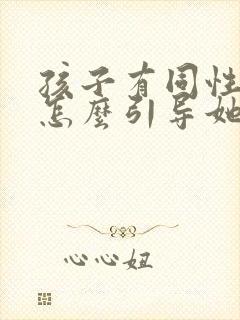 孩子有同性
怎麼引导她
心心妞